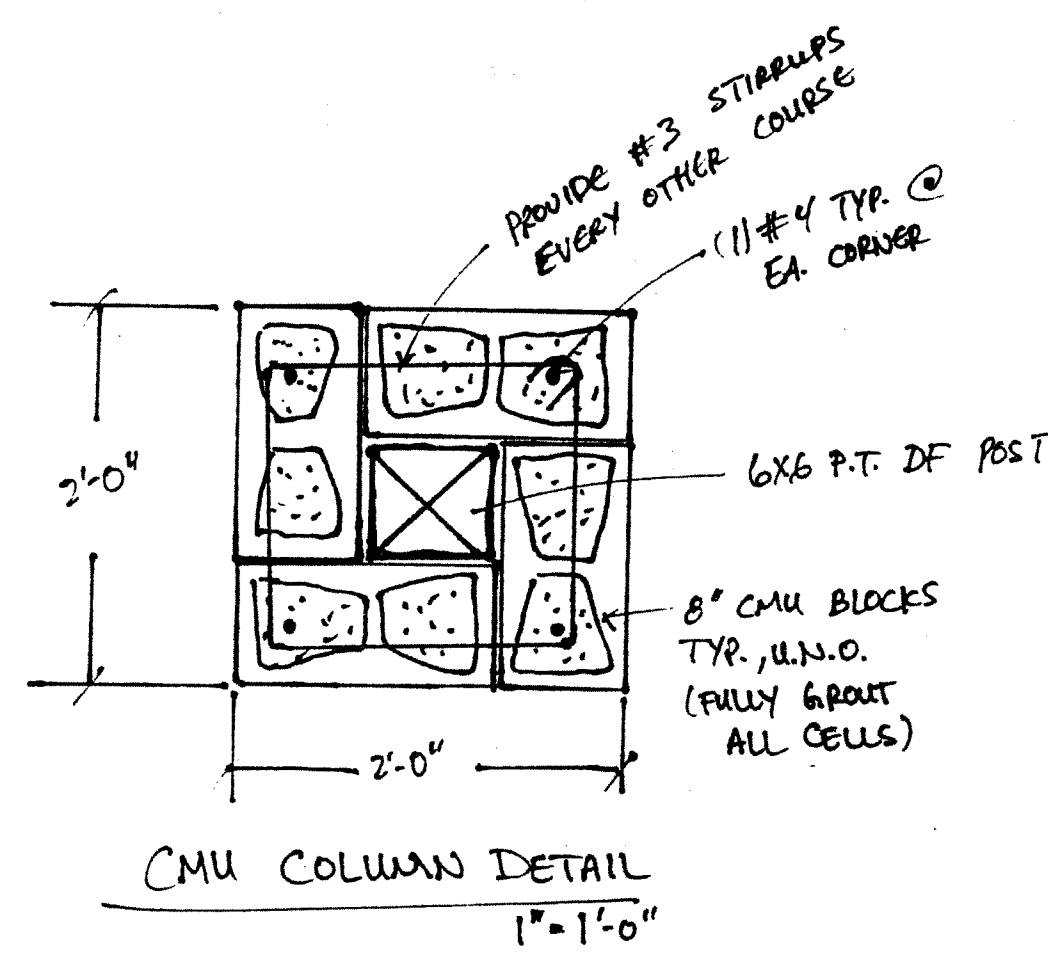 PROVIDE #3 STIRRUPS
EVERY OTHER COURSE
(1) #4 TYP. @
EA. CORNER
2'-0"
6X6 P.T. DF POST
8" CMU BLOCKS
TYP., U.N.O.
(FULLY GROUT
ALL CELLS)
2'-0"
CMU COLUMN DETAIL
1" = 1'-0"